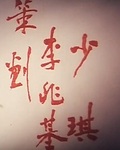 少琪
李兆基
劉